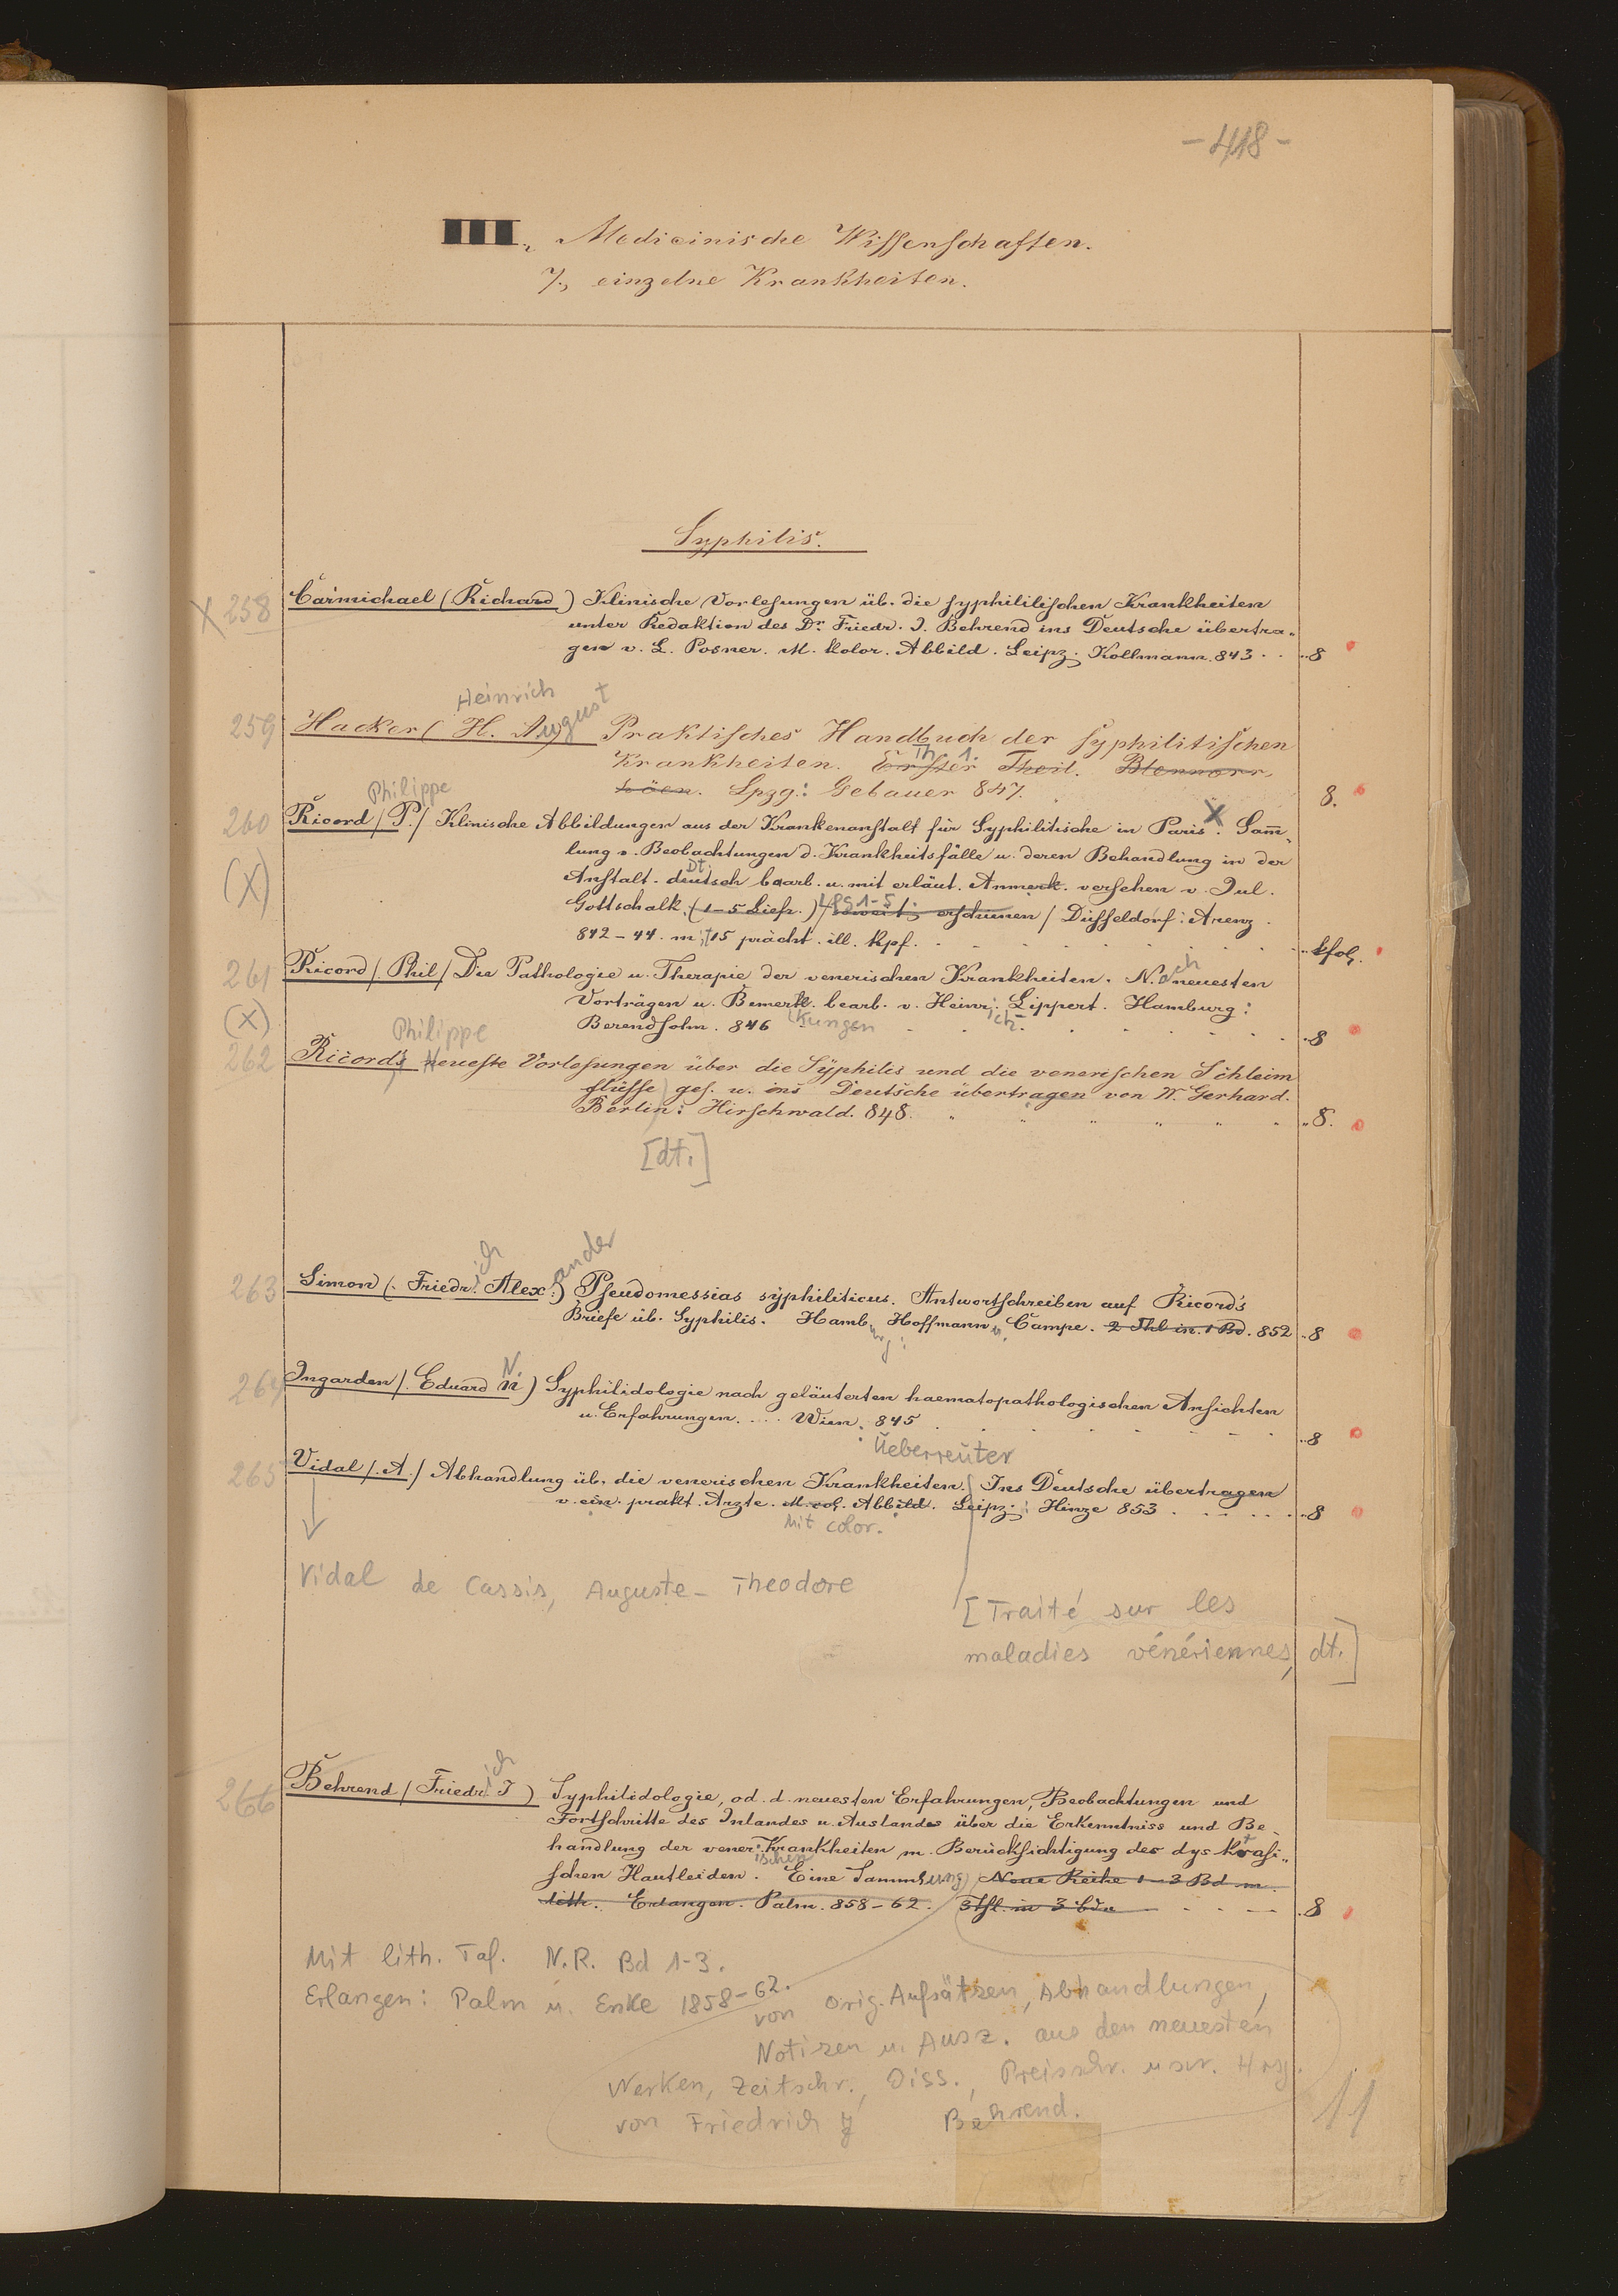 - 418 -
III., Medicinische Wissenschaften.
7., einzelne Krankheiten.
Syphilis.
X 258 Carmichael (Richard) Klinische Vorlesungen üb. die syphilitischen Krankheiten
unter Redaktion des Dr. Friedr. J. Behrend ins Deutsche übertra„
gen v. L. Posner. M. kolor. Abbild. Leipz. Kollmann. 843 . . „8
Heinrich
259 Hacker (H. August Praktisches Handbuch der syphilitischen
Th. 1.
Krankheiten. Erster Theil. Blennorr„
höen. Lpzg.: Gebauer 847. 8.
Philippe
260 Ricord /P./ Klinische Abbildungen aus der Krankenanstalt für Syphilitische in Paris. X Sam̄„
lung v. Beobachtungen d. Krankheitsfälle u. deren Behandlung in der
(X) Dt.
Anstalt. deutsch bearb. u. mit erläut. Anmerk. versehen v. Jul.
Lfg 1-5
Gottschalk. (1-5 Liefr.) /soweit erschienen/ Düsseldorf: Arenz.
842-44. mit 15 prächt. ill. Kpf. . . . „kfol.
261 Ricord /. Phil / Die Pathologie u. Therapie der venerischen Krankheiten. Nach neuesten
Vorträgen u. Bemerk. bearb. v. Heinr. Lippert. Hamburg:
(X) kungen ich.
Berendsohn. 846 . . . „8
Philippe
262 Ricord's Neueste Vorlesungen über die Syphilis und die venerischen Schleim
flüsse ges. u. ins Deutsche übertragen von W. Gerhard.
Berlin: Hirschwald. 848. „ „ „ „ „ „8.
[dt.]
263 Simon (. Friedrich Alexander) Pseudomessias syphiliticus. Antwortschreiben auf Ricord's
Briefe üb. Syphilis. Hamburg: Hoffmann u. Campe. 2 Thl in. 1 Bd. 852 „8
264 Ingarden /. Eduard N.) Syphilidologie nach geläuterten haematopathologischen Ansichten
u. Erfahrungen. .... Wien. 845 . . . „8
Ueberreuter
265 Vidal /. A./ Abhandlung üb. die venerischen Krankheiten. Ins Deutsche übertragen
v. ein. prakt. Arzte. M. col. Abbild. Leipz.: Hinze 853 . . . „8
Mit color.
Vidal de Cassis, Auguste-Theodore
[Traité sur les
maladies vénériennes, dt.]
266 Behrend / Friedrich J ) Syphilidologie, od. d. neuesten Erfahrungen, Beobachtungen und
Fortschritte des Inlandes u. Auslandes über die Erkenntniss und Be„
handlung der vener. Krankheiten m. Berücksichtigung der dyskrasi„
ischen
schen Hautleiden. Eine Sammlung Neue Reihe 1-3 Bd m.
lith. Erlangen. Palm. 858-62. 3 Thl. in 3 Bdn . . . „8
Mit lith. Taf. N.R. Bd 1-3.
Erlangen: Palm u. Enke 1858-62.
von orig. Aufsätzen, Abhandlungen,
Notizen u. Ausz. aus den neuesten
Werken, Zeitschr., Diss., Preisschr. usw. Hrsg.
von Friedrich J Behrend.
11